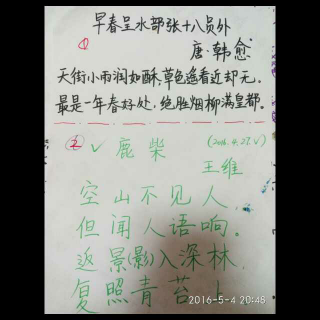 早春呈水部张十八员外
①
唐·韩愈
天街小雨润如酥,草色遥看近却无。
最是一年春好处,绝胜烟柳满皇都。
② √ 鹿柴 (2016.4.27.√)
王维
空山不见人
但闻人语响。
返景(影)入深林,
复照青苔上
2016-5-4 20:45